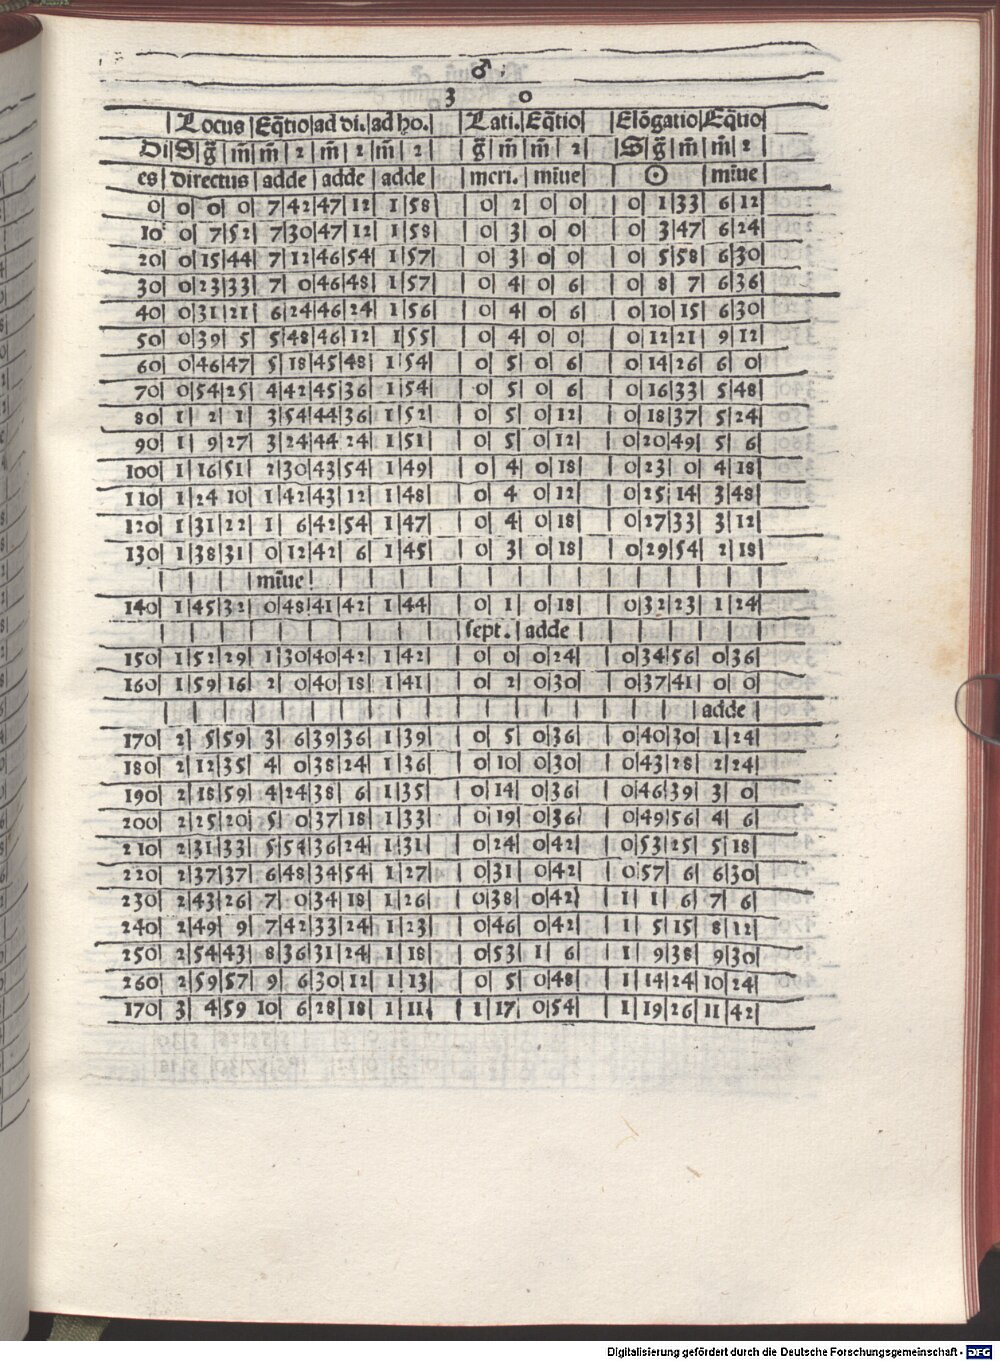 ♂
3 0
Locus | Eq̄tio | ad di. | ad ho. | Lati. | Eq̄tio | Elōgatio | Eq̄tio
Di | S | g̃ | m̃ | m̃ | 2 | m̃ | 2 | m̃ | 2 | g̃ | m̃ | m̃ | 2 | S | g̃ | m̃ | m̃ | 2
es | directus | adde | adde | adde | meri. | miue | ☉ | miue
0 | 0 | 0 | 0 | 7 | 42 | 47 | 12 | 1 | 58 | 0 | 2 | 0 | 0 | 0 | 1 | 33 | 6 | 12
10 | 0 | 7 | 52 | 7 | 30 | 47 | 12 | 1 | 58 | 0 | 3 | 0 | 0 | 0 | 3 | 47 | 6 | 24
20 | 0 | 15 | 44 | 7 | 12 | 46 | 54 | 1 | 57 | 0 | 3 | 0 | 0 | 0 | 5 | 58 | 6 | 30
30 | 0 | 23 | 33 | 7 | 0 | 46 | 48 | 1 | 57 | 0 | 4 | 0 | 6 | 0 | 8 | 7 | 6 | 36
40 | 0 | 31 | 21 | 6 | 24 | 46 | 24 | 1 | 56 | 0 | 4 | 0 | 6 | 0 | 10 | 15 | 6 | 30
50 | 0 | 39 | 5 | 5 | 48 | 46 | 12 | 1 | 55 | 0 | 4 | 0 | 0 | 0 | 12 | 21 | 9 | 12
60 | 0 | 46 | 47 | 5 | 18 | 45 | 48 | 1 | 54 | 0 | 5 | 0 | 6 | 0 | 14 | 26 | 6 | 0
70 | 0 | 54 | 25 | 4 | 42 | 45 | 36 | 1 | 54 | 0 | 5 | 0 | 6 | 0 | 16 | 33 | 5 | 48
80 | 1 | 2 | 1 | 3 | 54 | 44 | 36 | 1 | 52 | 0 | 5 | 0 | 12 | 0 | 18 | 37 | 5 | 24
90 | 1 | 9 | 27 | 3 | 24 | 44 | 24 | 1 | 51 | 0 | 5 | 0 | 12 | 0 | 20 | 49 | 5 | 6
100 | 1 | 16 | 51 | 2 | 30 | 43 | 54 | 1 | 49 | 0 | 4 | 0 | 18 | 0 | 23 | 0 | 4 | 18
110 | 1 | 24 | 10 | 1 | 42 | 43 | 12 | 1 | 48 | 0 | 4 | 0 | 12 | 0 | 25 | 14 | 3 | 48
120 | 1 | 31 | 22 | 1 | 6 | 42 | 54 | 1 | 47 | 0 | 4 | 0 | 18 | 0 | 27 | 33 | 3 | 12
130 | 1 | 38 | 31 | 0 | 12 | 42 | 6 | 1 | 45 | 0 | 3 | 0 | 18 | 0 | 29 | 54 | 2 | 18
miue
140 | 1 | 45 | 32 | 0 | 48 | 41 | 42 | 1 | 44 | 0 | 1 | 0 | 18 | 0 | 32 | 23 | 1 | 24
sept. | adde
150 | 1 | 52 | 29 | 1 | 30 | 40 | 42 | 1 | 42 | 0 | 0 | 0 | 24 | 0 | 34 | 56 | 0 | 36
160 | 1 | 59 | 16 | 2 | 0 | 40 | 18 | 1 | 41 | 0 | 2 | 0 | 30 | 0 | 37 | 41 | 0 | 0
adde
170 | 2 | 5 | 59 | 3 | 6 | 39 | 36 | 1 | 39 | 0 | 5 | 0 | 36 | 0 | 40 | 30 | 1 | 24
180 | 2 | 12 | 35 | 4 | 0 | 38 | 24 | 1 | 36 | 0 | 10 | 0 | 30 | 0 | 43 | 28 | 2 | 24
190 | 2 | 18 | 59 | 4 | 24 | 38 | 6 | 1 | 35 | 0 | 14 | 0 | 36 | 0 | 46 | 39 | 3 | 0
200 | 2 | 25 | 20 | 5 | 0 | 37 | 18 | 1 | 33 | 0 | 19 | 0 | 36 | 0 | 49 | 56 | 4 | 6
210 | 2 | 31 | 33 | 5 | 54 | 36 | 24 | 1 | 31 | 0 | 24 | 0 | 42 | 0 | 53 | 25 | 5 | 18
220 | 2 | 37 | 37 | 6 | 48 | 34 | 54 | 1 | 27 | 0 | 31 | 0 | 42 | 0 | 57 | 6 | 6 | 30
230 | 2 | 43 | 26 | 7 | 0 | 34 | 18 | 1 | 26 | 0 | 38 | 0 | 42 | 1 | 1 | 6 | 7 | 6
240 | 2 | 49 | 9 | 7 | 42 | 33 | 24 | 1 | 23 | 0 | 46 | 0 | 42 | 1 | 5 | 15 | 8 | 12
250 | 2 | 54 | 43 | 8 | 36 | 31 | 24 | 1 | 18 | 0 | 53 | 1 | 6 | 1 | 9 | 38 | 9 | 30
260 | 2 | 59 | 57 | 9 | 6 | 30 | 12 | 1 | 13 | 0 | 5 | 0 | 48 | 1 | 14 | 24 | 10 | 24
170 | 3 | 4 | 59 | 10 | 6 | 28 | 18 | 1 | 11 | 1 | 17 | 0 | 54 | 1 | 19 | 26 | 11 | 42
Digitalisierung gefördert durch die Deutsche Forschungsgemeinschaft - DFG